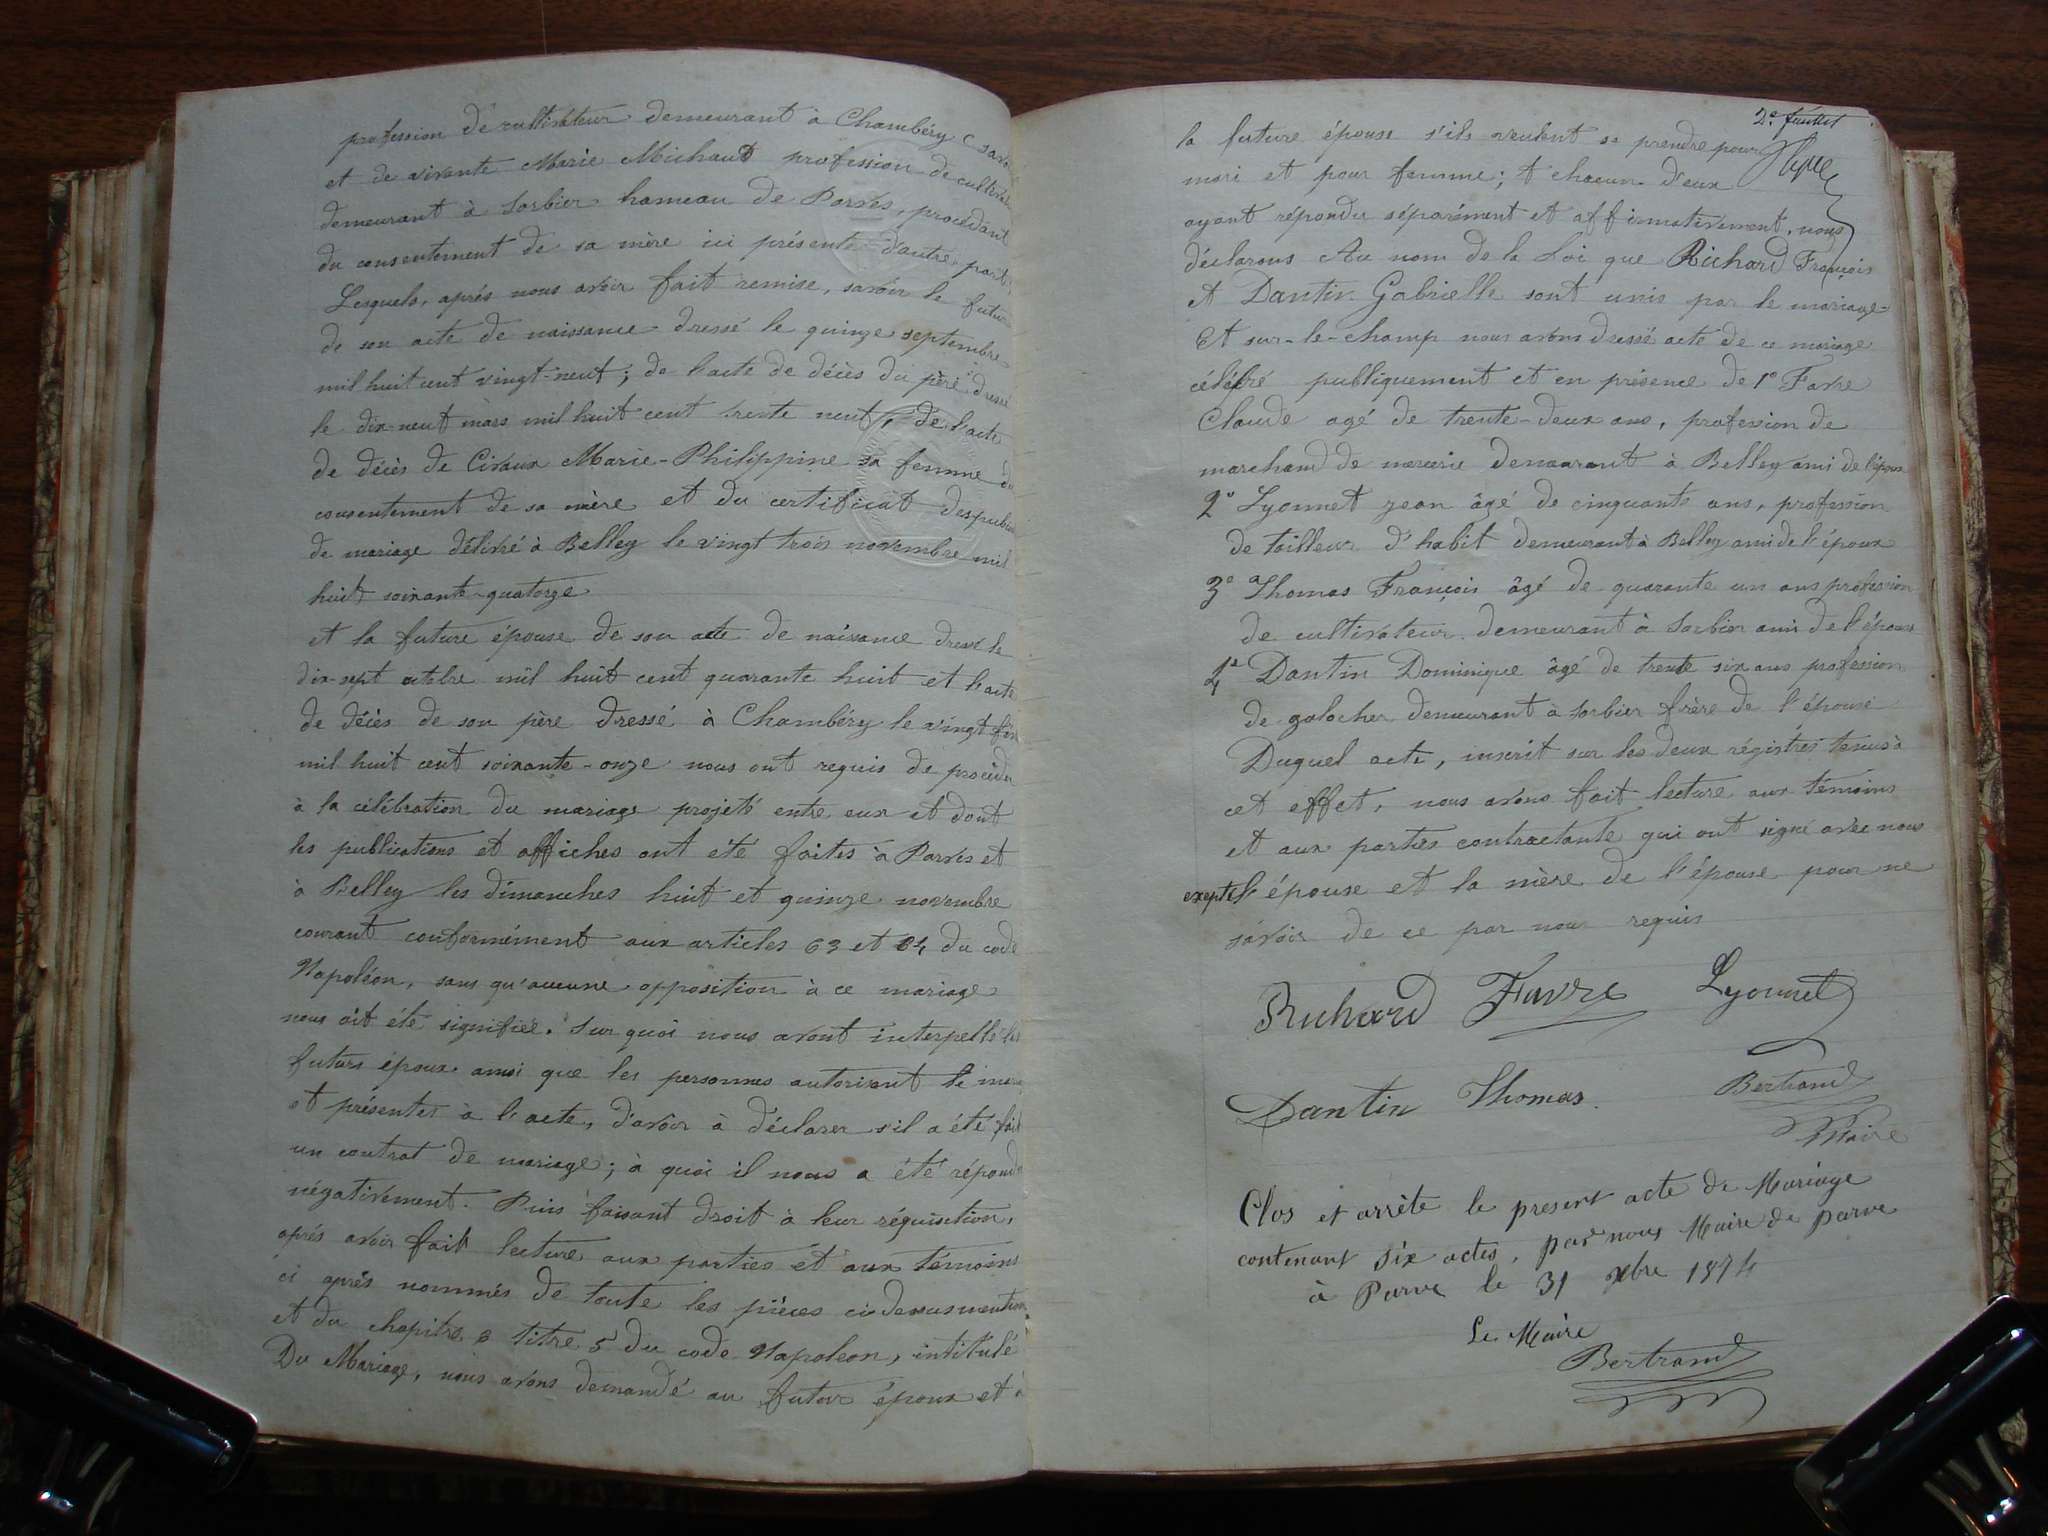 profession de cultivateur demeurant à Chambéry
et de vivante Marie Michaud profession de
demeurant à Sorbier hameau de Parves, procédant
du consentement de sa mère ici présente d'autre part
Lesquels, après nous avoir fait remise, savoir le futur
de son acte de naissance dressé le quinze septembre
mil huit cent vingt-neuf; de l'acte de décès du père dressé
le dix neuf mars mil huit cent trente neuf, de l'acte
de décès de Civaux Marie-Philippine sa femme du
consentement de sa mère et du certificat des
de mariage délivré à Belley le vingt trois novembre mil
huit soixante-quatorze
et la future épouse de son acte de naissance dressé le
dix-sept octobre mil huit cent quarante huit et l'acte
de décès de son père dressé à Chambéry le vingt
mil huit cent soixante-onze nous ont requis de procéder
à la célébration du mariage projeté entre eux et dont
les publications et affiches ont été faites à Parves et
à Belley les dimanches huit et quinze novembre
courant conformément aux articles 63 et 64 du code
Napoléon, sans qu'aucune opposition à ce mariage
nous ait été signifiée. Sur quoi nous avont interpellé les
futurs époux ainsi que les personnes autorisant le
et présentes à l'acte, d'avoir à déclarer s'il a été fait
un contrat de mariage; à quoi il nous a été répondu
négativement. Puis faisant droit à leur réquisition,
après avoir fait lecture aux parties et aux témoins
ci après nommés de toute les pièces ci dessus
et du chapitre titre 5 du code Napoléon, intitulé
Du Mariage, nous avons demandé au futur époux et à
2e feuillet
la future épouse s'ils veulent se prendre pour
mari et pour femme; et chacun d'eux
ayant répondu séparément et affirmativement, nous
déclarons Au nom de la Loi que Richard François
et Dantin Gabrielle sont unis par le mariage
Et sur-le-champ nous avons dressé acte de ce mariage
célébré publiquement et en présence de 1° Favre
Claude agé de trente-deux ans, profession de
marchand de mercerie demeurant à Belley ami de l'époux
2° Lyonnet jean âgé de cinquante ans, profession
de tailleur d'habit demeurant à Belley ami de l'époux
3e Thomas François âgé de quarante un ans profession
de cultivateur demeurant à Sorbier ami de l'époux
4e Dantin Dominique âgé de trente six ans profession
de galocher demeurant à Sorbier frère de l'épouse
Duquel acte, inscrit sur les deux régistres tenus à
cet effet, nous avons fait lecture aux témoins
et aux parties contractante qui ont signé avec nous
excepté l'épouse et la mère de l'épouse pour ne
savoir de ce par nous requis
Richard Favre Lyonnet
Dantin Thomas. Bertrand
Maire
Clos et arrête le present acte de Mariage
contenant six actes, par nous Maire de parve
à Parve le 31 xbre 1874
Le Maire
Bertrand